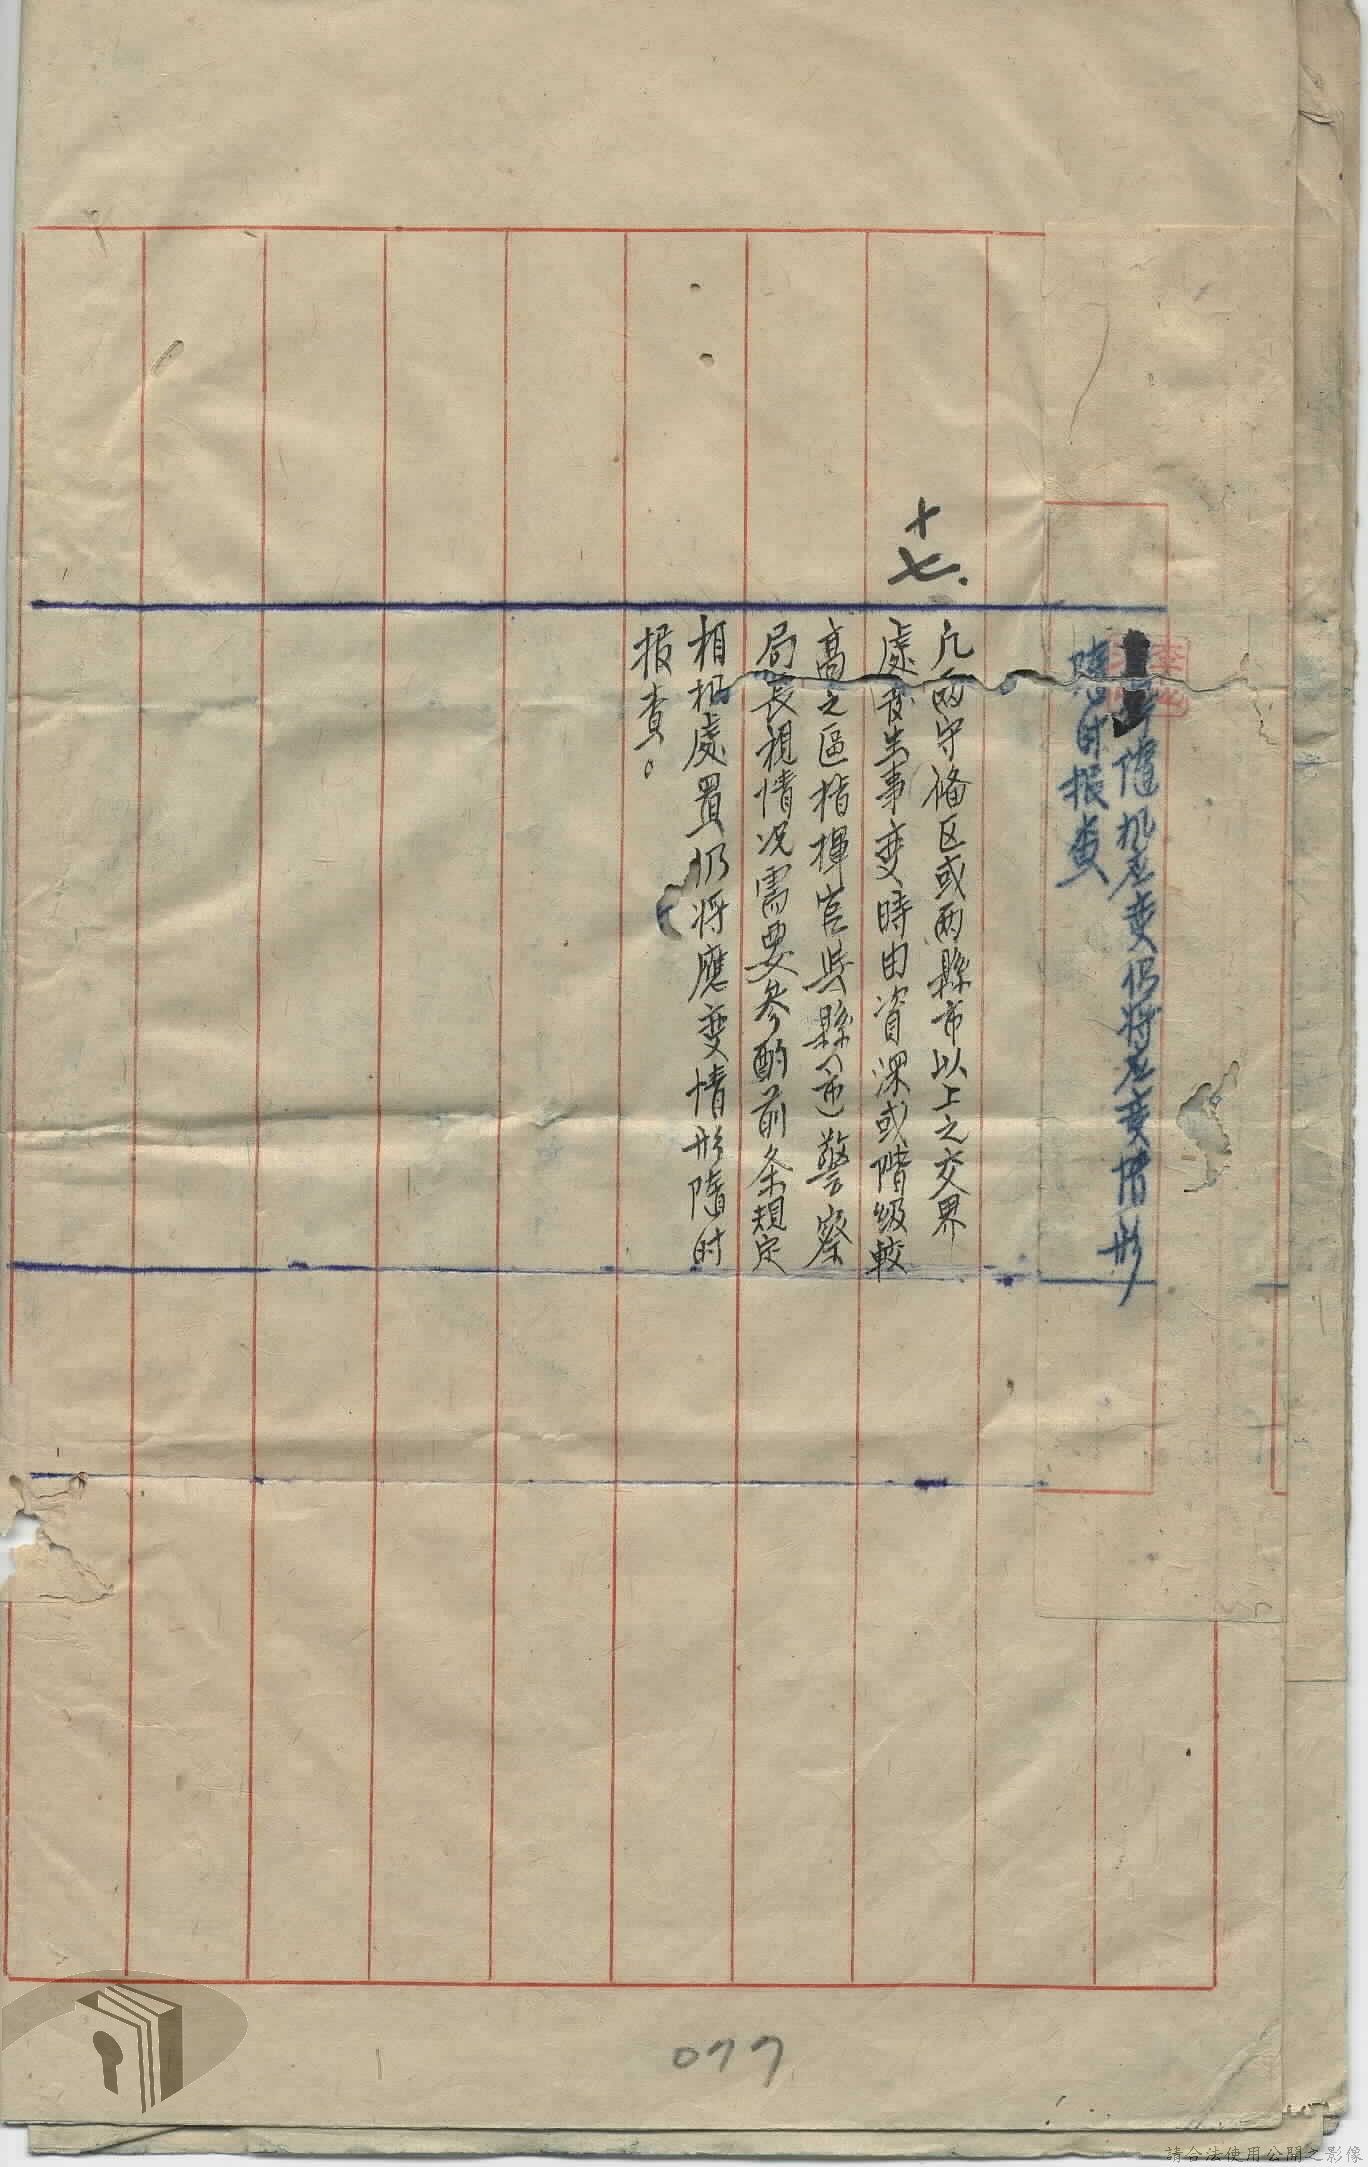 隨机应变仍将应变情形
隨时报查
十七.
凡兩守備区或兩縣市以上之交界
處發生事变時由資深或階級較
高之區指揮官與縣(市)警察
局長視情况需要參酌前条規定
相机處置仍将應变情形隨时
报查。
077
請合法使用公開之影像